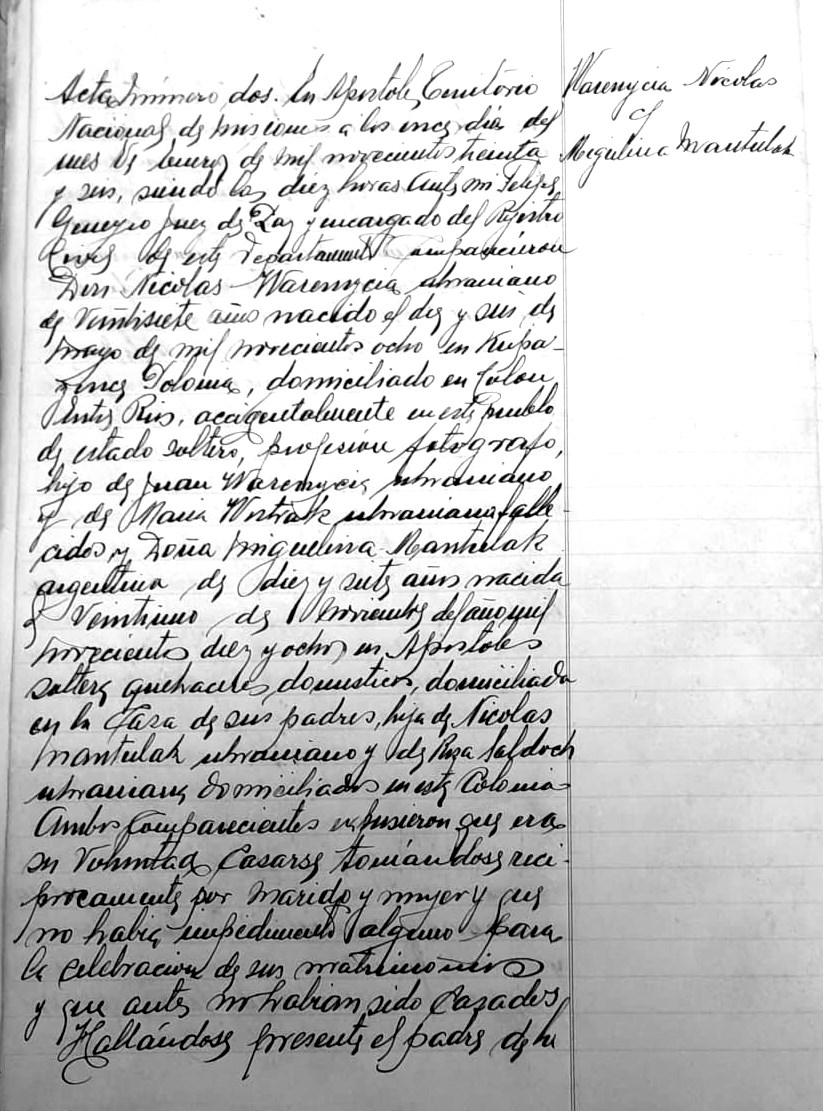 Acta Número dos. En Apostoles, Territorio
Nacional de Misiones a los once dia del
mes de Enero de mil novecientos treinta
y seis, siendo las diez horas Ante mi Felipe
Juez de Paz y encargado del Registro
Civil de este Departamento comparecieron
Don Nicolas Warenycia ukraniano
de Veintisiete años nacido el diez y seis de
Mayo de mil novecientos ocho en
Polonia, domiciliado en Colon
Entre Rios, accidentalmente en este Pueblo
de estado soltero, profesion fotografo,
hijo de Juan Warenycia ukraniano
y de Maria ukraniana falle-
cidos y Doña Miguelina Mantulak
argentina de diez y siete años nacida
el Veintiuno de Noviembre del año mil
novecientos diez y ocho en Apostoles
soltera quehaceres domesticos, domiciliada
en la Casa de sus padres, hija de Nicolas
Mantulak ukraniano y de Rosa Saldoch
ukraniana domiciliados en esta Colonia
Ambos Comparecientes expusieron que era
su Voluntad Casarse tomándose reci-
procamente por marido y mujer y que
no habia impedimento alguno para
la celebracion de sus matrimonios
y que antes no habian sido Casados
Hallándose presente el padre de la
Warenycia Nicolas
y
Miguelina Mantulak